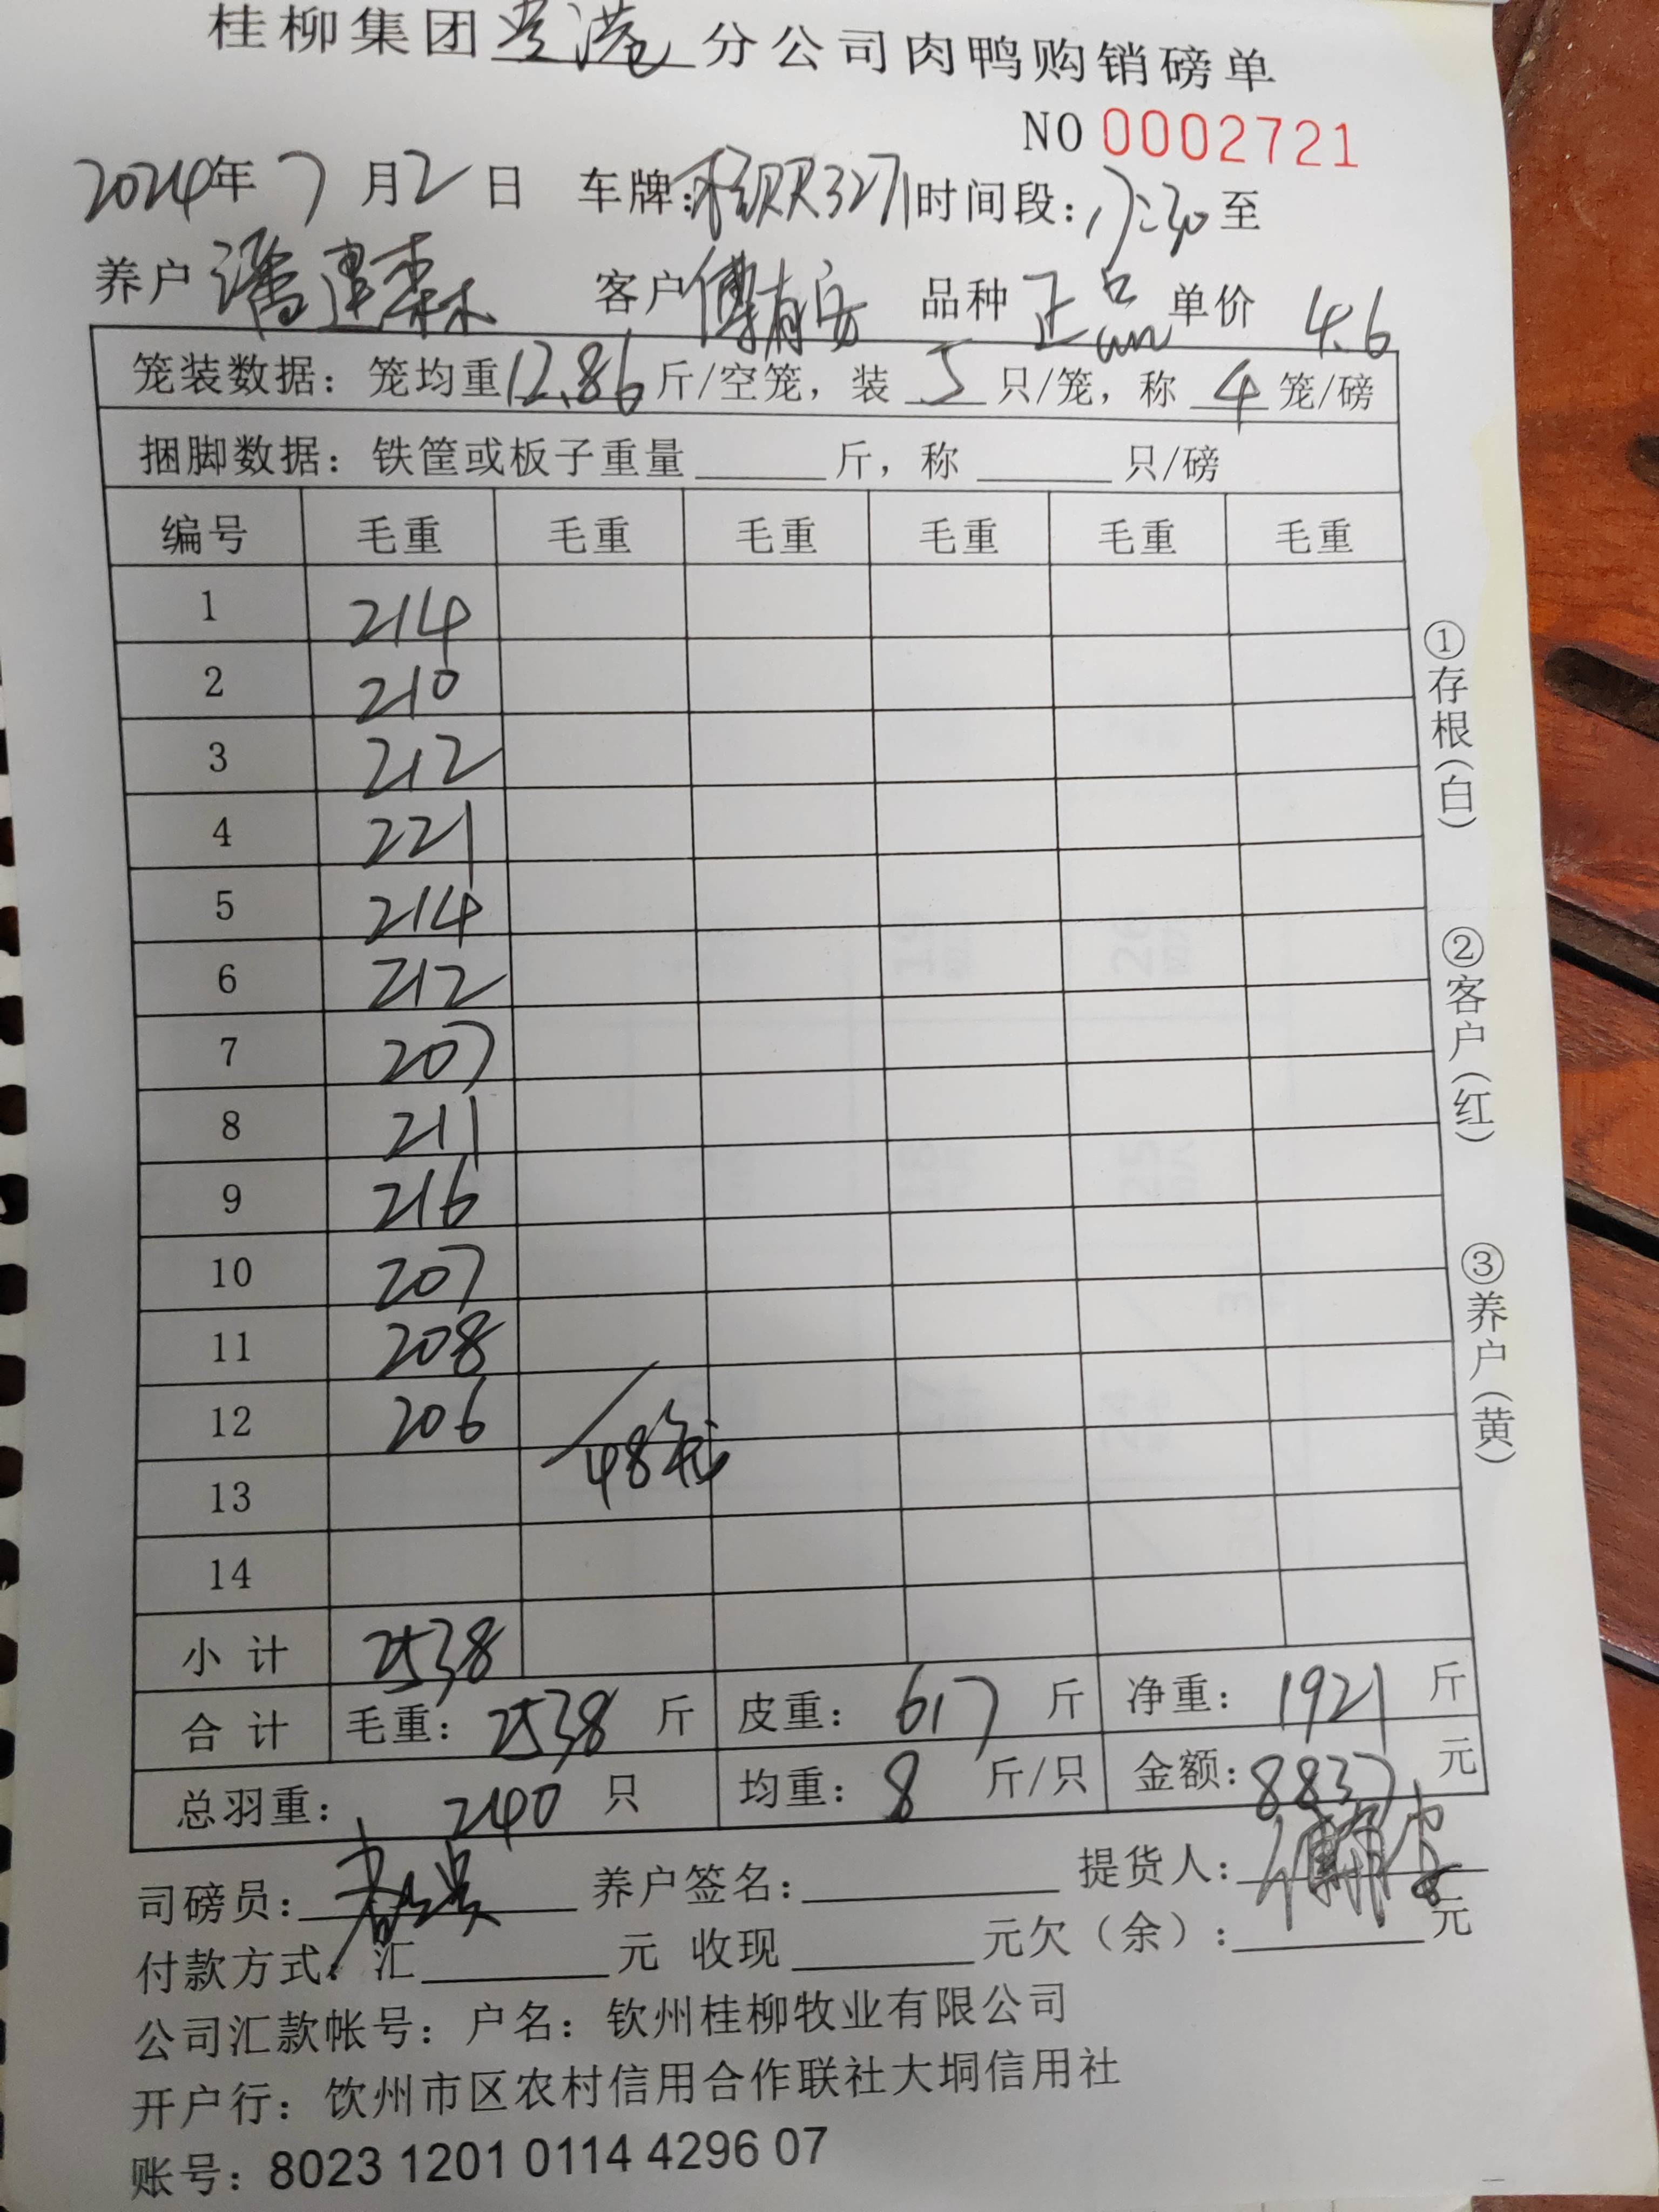 桂柳集团贵港分公司肉鸭购销磅单
NO 0002721
2024年7月2日 车牌:桂R3271 时间段:17:30至
养户 潘建森 客户 傅有安 品种 正品 单价 4.6
笼装数据：笼均重12.86斤/空笼，装5只/笼，称4笼/磅
捆脚数据：铁筐或板子重量______斤，称______只/磅
编号 毛重 毛重 毛重 毛重 毛重 毛重
1 214
2 210
3 212
4 221
5 214
6 212
7 207
8 211
9 216
10 207
11 208
12 206
48笼
13
14
小计 2538
合计 毛重：2538斤 皮重：617斤 净重：1921斤
总羽重：240只 均重：8斤/只 金额：8837元
司磅员：______ 养户签名：______ 提货人：傅有安
付款方式：汇______元 收现______元欠（余）：______元
公司汇款帐号：户名：钦州桂柳牧业有限公司
开户行：饮州市区农村信用合作联社大垌信用社
账号：8023 1201 0114 4296 07
①存根(白)
②客户(红)
③养户(黄)